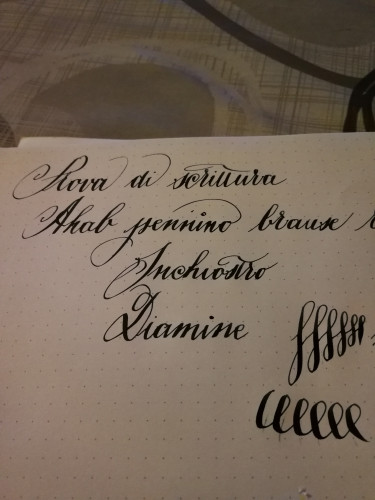 Prova di scrittura
Ahab pennino brause
Inchiostro
Diamine